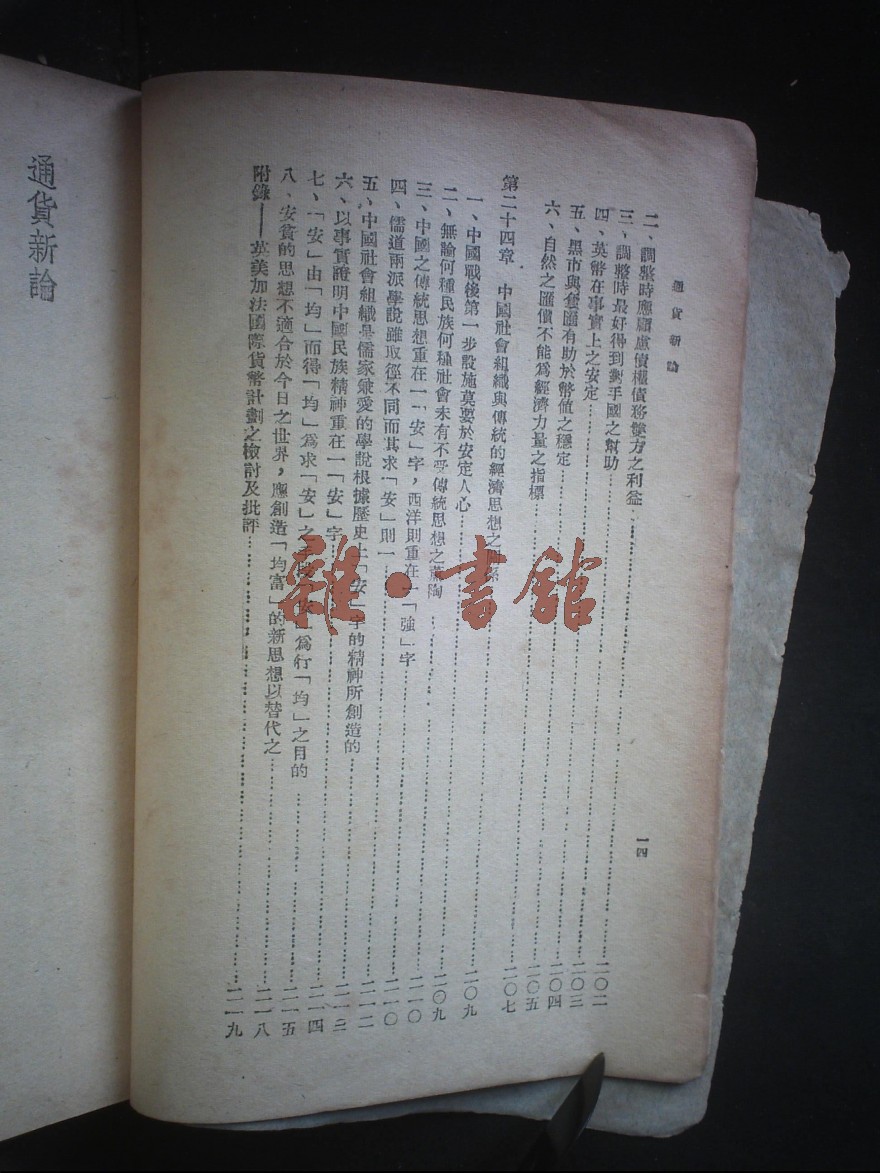 通貨新論
一四
二、調整時應顧慮債權債務雙方之利益……二〇二
三、調整時最好得到對手國之幫助……二〇三
四、英幣在事實上之安定……二〇四
五、黑市與套匯有助於幣值之穩定……二〇五
六、自然之匯價不能為經濟力量之指標……二〇七
第二十四章 中國社會組織與傳統的經濟思想之係……二〇九
一、中國戰後第一步設施莫要於安定人心……二〇九
二、無論何種民族何種社會未有不受傳統思想之薰陶……二一〇
三、中國之傳統思想重在一「安」字，西洋則重在一「強」字……二一〇
四、儒道兩派學說雖取徑不同而其求「安」則一……二一二
五、中國社會組織是儒家兼愛的學說根據歷史上「安」字的精神所創造的……二一三
六、以事實證明中國民族精神重在一「安」字……二一四
七、「安」由「均」而得「均」為求「安」之「安」為行「均」之目的……二一五
八、安貧的思想不適合於今日之世界，應創造「均富」的新思想以替代之……二一八
附錄——英美加法國際貨幣計劃之檢討及批評……二一九
通貨新論
雜·書館